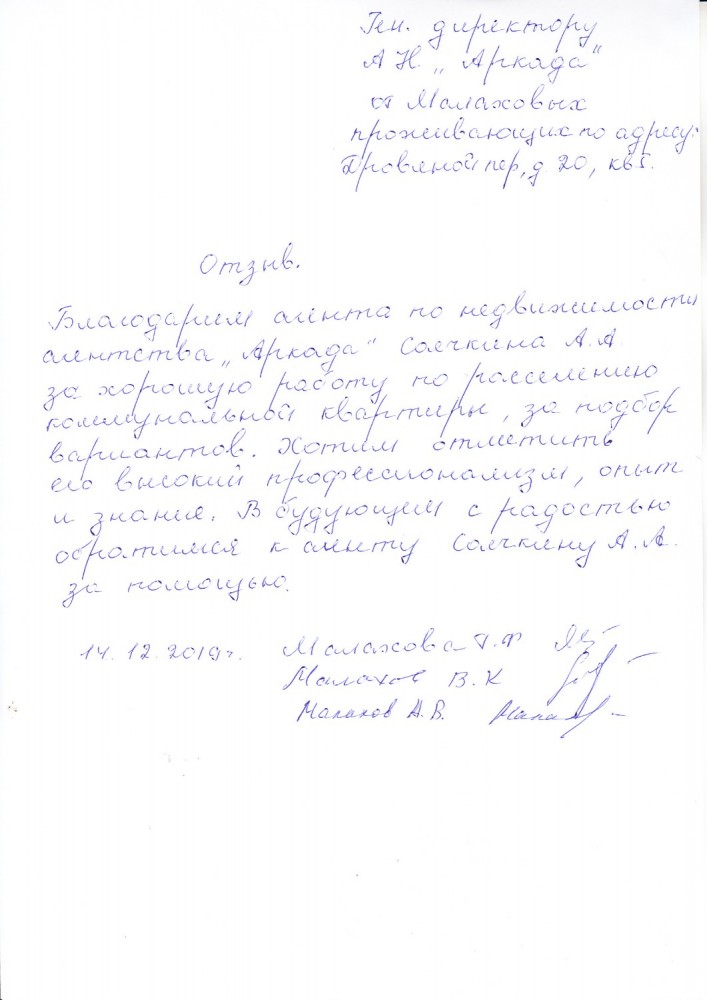 Ген. директору
АН „Аркада"
от Малаховых
проживающих по адресу:
Дровяной пер, д 20, кв 5.
Отзыв.
Благодарим агента по недвижимости
агентства „Аркада" Саечкина А.А
за хорошую работу по расселению
коммунальной квартиры, за подбор
вариантов. Хотим отметить
его высокий профессионализм, опыт
и знание. В будующем с радостью
обратимся к агенту Саечкину А.А.
за помощью.
14.12.2019г. Малахова Т.Ф
Малахов В.К
Малахов А.В.